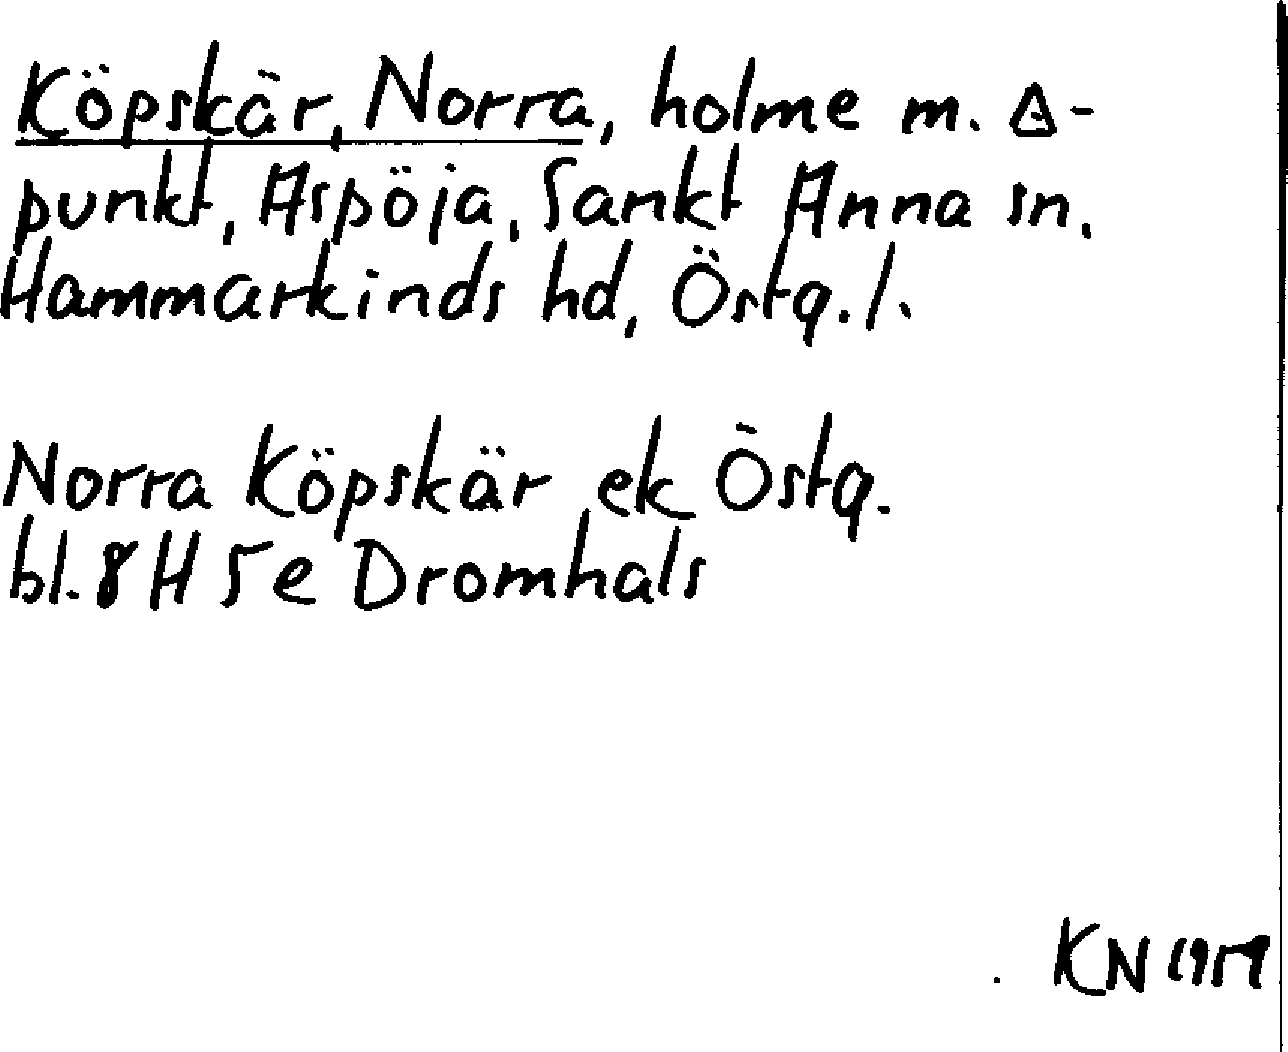 Köpskär, Norra, holme m. △-
punkt, Aspöja, Sankt Anna sn.
Hammarkinds hd, Östg. l.
Norra Köpskär ek Östg.
bl. 8 H 5 e Dromhals
KN 1959